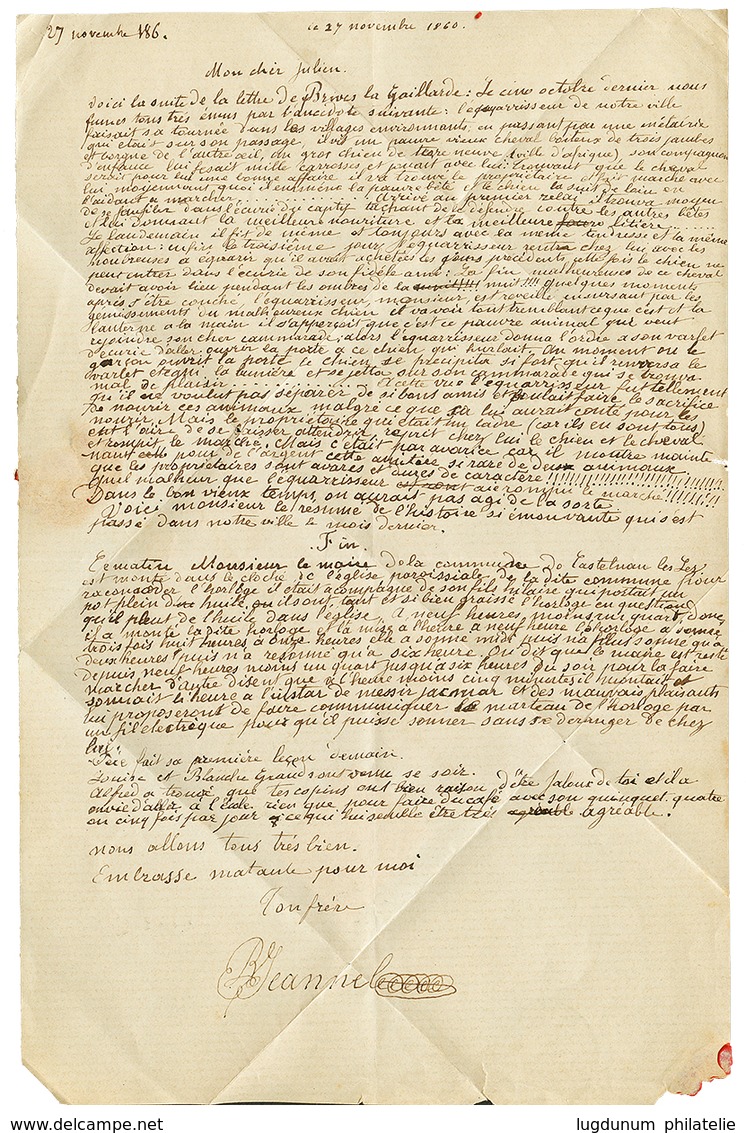 27 novembre 186.
le 27 novembre 1860.
Mon cher Julien.
Voici la suite de la lettre de Brives la Gaillarde: Le cinq octobre dernier nous
fumes tous très émus par l'anecdote suivante: l'équarrisseur de notre ville
faisait sa tournée dans les villages environnants, en passant par une métairie
qui était sur son passage, il vit un pauvre vieux cheval boiteux de trois jambes
et borgne de l'autre œil, un gros chien de terre neuve (ville d'afrique) son compagnon
d'enfance lui fesait mille caresses et jouait avec lui: trouvant que le cheval
serait pour lui une bonne affaire il va trouver le propriétaire fait marché avec
lui moyennant quoi il emmène la pauvre bête et le chien la suit de loin en
l'aidant a marcher Arrivé au premier relai il trouva moyen
de se faufiler dans l'écurie du captif tachant de le défendre contre les autres bêtes
et lui donnant la meilleure nourriture et la meilleure litière
Le landemain il fit de même et toujours avec la même tendresse et la même
affection: enfin le troisième jour, l'équarrisseur rentra chez lui avec les
nombreuses a équarir qu'il avait achetées les jours précédents, cette fois le chien ne
peut entrer dans l'écurie de son fidèle ami: La fin malheureuses de ce cheval
devait avoir lieu pendant les ombres de la nuit!!!! quelques moments
après s'être couché, l'équarrisseur, monsieur, est reveillé en sursaut par les
gémissements du malheureux chien et va voir tout tremblant ce que c'est et la
lanterne a la main il s'apperçoit que c'est ce pauvre animal qui veut
rejoindre son cher cammarade, alors l'équarrisseur donna l'ordre a son varlet
d'écurie d'aller ouvrir la porte a ce chien qui hurlait, Au moment ou le
garçon ouvrit la porte le chien se précipita si fort qu'il renversa le
varlet éteignit la lumière et se jetta sur son cammarade qui se trouva
mal de plaisir A cette vue l'équarrisseur fut tellement
qu'il ne voulut pas séparer de si bons amis et voulait faire le sacrifice
de nourir ces animaux malgré ce que ça lui aurait couté pour les
nourir. Mais le propriétaire qui était un ladre (car ils en sont tous)
eut l'air de se laisser attendrir reprit chez lui le chien et le cheval
et rompit le marché. Mais c'était par avarice car il montre mainte
nant pour de l'argent cette amitiée si rare de deux animaux.
que les propriétaires sont avares et durs de caractère!!!!!!!!!!!!!!!!!
Quel malheur que l'equarrisseur aie rompu le marché!!!!!!!!!
Dans le bon vieux temps, on aurait pas agi de la sorte
Voici monsieur le résumé de l'histoire si émouvante qui s'est
passé dans notre ville le mois dernier.
Fin.
Ce matin Monsieur le maire de la commune de Castelnau les Lez
est monté dans le cloche de l'église paroissiale de la dite commune pour
raconoder l'horloge il était acompagné de son fils hilaire qui portait un
pot plein d'une huile, ou ils ont, tant et si bien graissé l'horloge en question
qu'il pleut de l'huile dans l'église, A neuf heures moins un quart, donc,
il a monté la dite horloge et la mise a l'heure a neuf heure l'horloge a sonné
trois fois huit heures, a onze heures elle a sonné midi puis na plus sonné qu'a
deux heures puis n'a resonné qu'a six heure. On dit que le maire est resté
depuis neuf heures moins un quart jusqu'a six heures du soir pour la faire
marcher d'autre disent que a l'heure moins cinq minutes il montait et
sonnait l'heure a l'instar de messir jacmar et des mauvais plaisants
lui proposeront de faire communiquer le marteau de l'horloge par
un fil électrique pour qu'il puisse sonner sans se deranger de chez
lui
fait sa première leçon demain.
Louise et Blanche Grand sont venu se soir.
Alfred a trouvé que tes copins ont bien raison d'être jaloux de toi et il a
envie d'aller a l'école rien que pour faire du café avec son quinquet quatre
ou cinq fois par jour ce qui lui semble être très agréable.
nous allons tous très bien.
Embrasse ma tante pour moi
Ton frère
B Jeannel
lugdunum philatelie